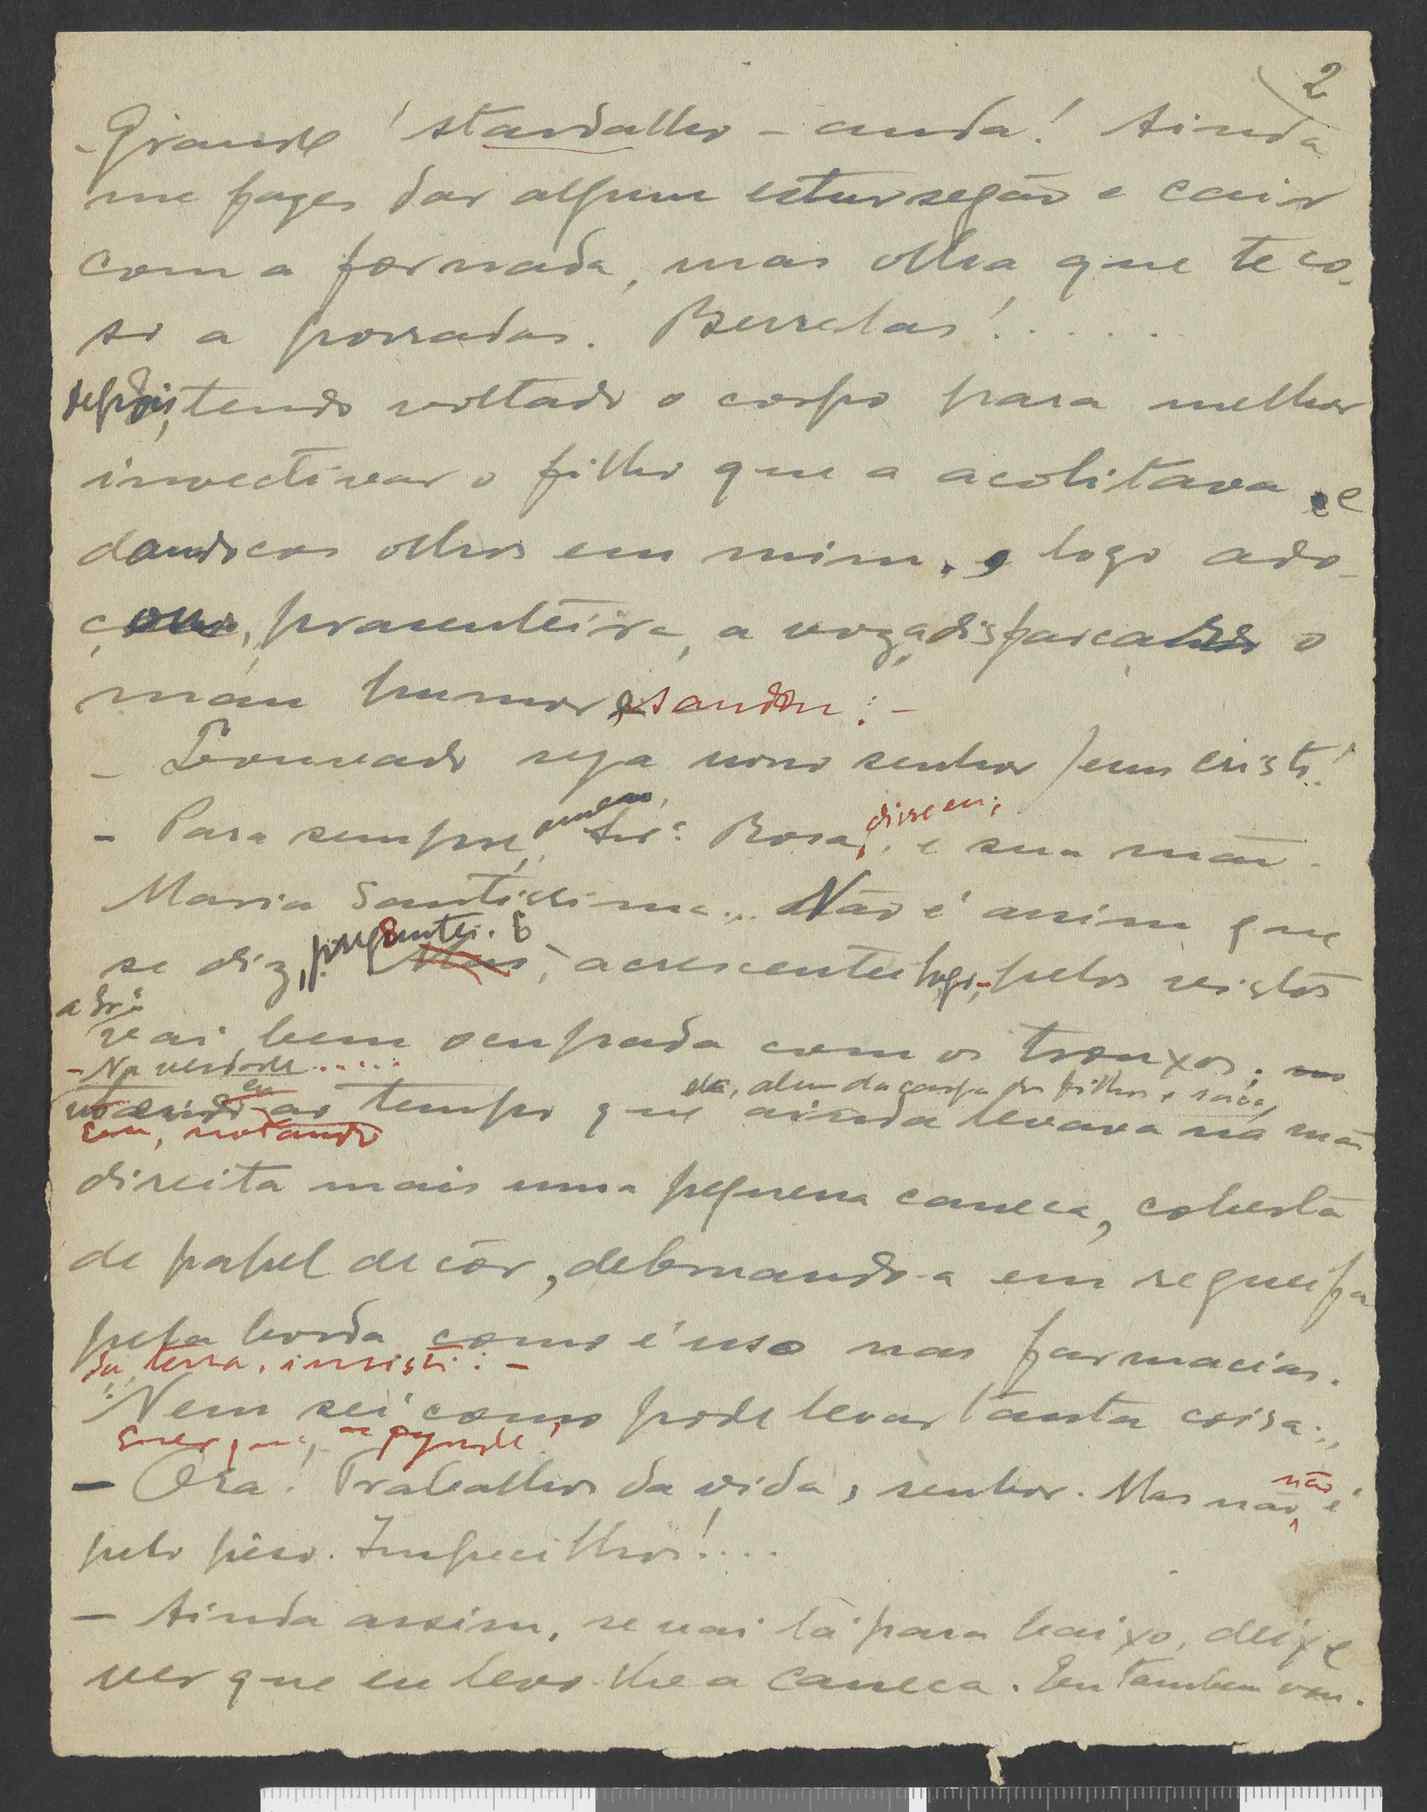 2
- Grande 'standalho - anda! Ainda
me fazes dar algum estursegão e cair
com a fornada, mas olha que te co-
so a porradas. Berrelas!.....
depois, tendo voltado o corpo para melhor
invectivar o filho que a acolitava, e
dando cos olhos em mim, logo ado-
çou, prasenteira, a voz, a disfarçar o
mau humor, e saudou: -
- Louvado seja nosso senhor Jesus Cristo!
- Para sempre, amen, Snrª Rosa, disse eu; e sua mãe
Maria Santissima... Não é assim que
se diz, perguntei. E acrescentei logo, - pelos vistos
a Srª vai bem ocupada com os trouxos;
- Na verdade.....
eu, notando ao tempo que ela, alem da carga do filho e saca, ainda levava na mão
direita mais uma pequena caneca, coberta
de papel de côr, debruando-a em
pela borda como é uso nas farmacias.
da terra, insisti: -
Nem sei como pode levar tanta coisa...
- Ora! Trabalhos da vida, senhor. Mas não, não é
pelo pêso. Impecilhos!....
- Ainda assim, se vai lá para baixo, deixe
ver que eu levo-lhe a caneca. Eu tambem vou.